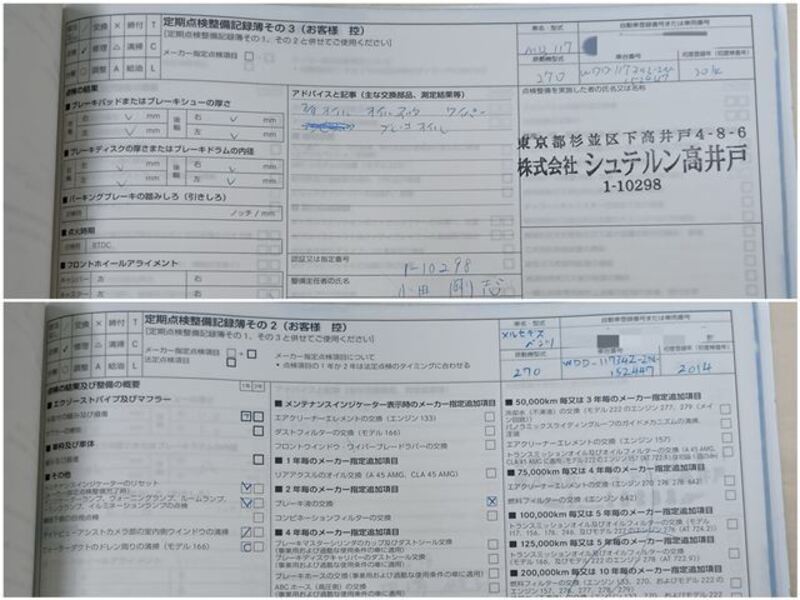 交換 × 締付 T
修理 △ 清掃 C
調整 A 給油 L
定期点検整備記録簿その3（お客様 控）
[定期点検整備記録簿その1、その2と併せてご使用ください]
メーカー指定点検項目
車名・型式
自動車登録番号または車両番号
原動機型式
車台番号
初度登録年（初度検査年）
270
点検の結果
■ブレーキパッドまたはブレーキシューの厚さ
右 mm 右 mm
左 mm 左 mm
■ブレーキディスクの厚さまたはブレーキドラムの内径
右 mm 右 mm
左 mm 左 mm
■パーキングブレーキの踏みしろ（引きしろ）
ノッチ / mm
■点火時期
BTDC
■フロントホイールアライメント
キャンバー 左 右
キャスター 左 右
アドバイスと記事（主な交換部品、測定結果等）
ワイパー
ブレーキオイル
認証又は指定番号
1-10298
整備主任者の氏名
点検整備を実施した者の氏名又は名称
東京都杉並区下高井戸4-8-6
株式会社 シュテルン高井戸
1-10298
交換 × 締付 T
修理 △ 清掃 C
調整 A 給油 L
定期点検整備記録簿その2（お客様 控）
[定期点検整備記録簿その1、その3と併せてご使用ください]
メーカー指定点検項目
法定点検項目
メーカー指定点検項目について
・点検項目の1年か2年は法定点検のタイミングに合わせる
車名・型式
メルセデス
ベンツ
自動車登録番号または車両番号
原動機型式
270
車台番号
WDD-117342-2N-
152447
初度登録年（初度検査年）
2014
点検の結果及び整備の概要
■エグゾーストパイプ及びマフラー
■車枠及び車体
■その他
メンテナンスインジケーターのリセット
イルミネーションランプの点検
ナイトビューアシストカメラ部の室内側ウインドウの清掃
ウォーターダクトのドレン周りの清掃（モデル166）
■メンテナンスインジケーター表示時のメーカー指定追加項目
エアクリーナーエレメントの交換（エンジン133）
ダストフィルターの交換（モデル166）
フロントウインドウ・ワイパーブレードラバーの交換
■1年毎のメーカー指定追加項目
リアアクスルのオイル交換（A 45 AMG, CLA 45 AMG）
■2年毎のメーカー指定追加項目
ブレーキ液の交換
コンビネーションフィルターの交換
■4年毎のメーカー指定追加項目
ブレーキマスターシリンダのカップ及びダストシール交換
（事業用および過酷な使用条件の車に適用）
ブレーキディスクキャリパーのダストシール交換
（事業用および過酷な使用条件の車に適用）
ブレーキホースの交換（事業用および過酷な使用条件の車に適用）
ABC ホース（高圧側）の交換
■50,000km 毎又は3年毎のメーカー指定追加項目
パノラミックスライディングルーフのガイドメカニズムの清掃、
エアクリーナーエレメントの交換（エンジン157）
■75,000km 毎又は4年毎のメーカー指定追加項目
エアクリーナーエレメントの交換（エンジン270 276 278 642）
燃料フィルターの交換（エンジン642）
■100,000km 毎又は5年毎のメーカー指定追加項目
■125,000km 毎又は5年毎のメーカー指定追加項目
■200,000km 毎又は10年毎のメーカー指定追加項目